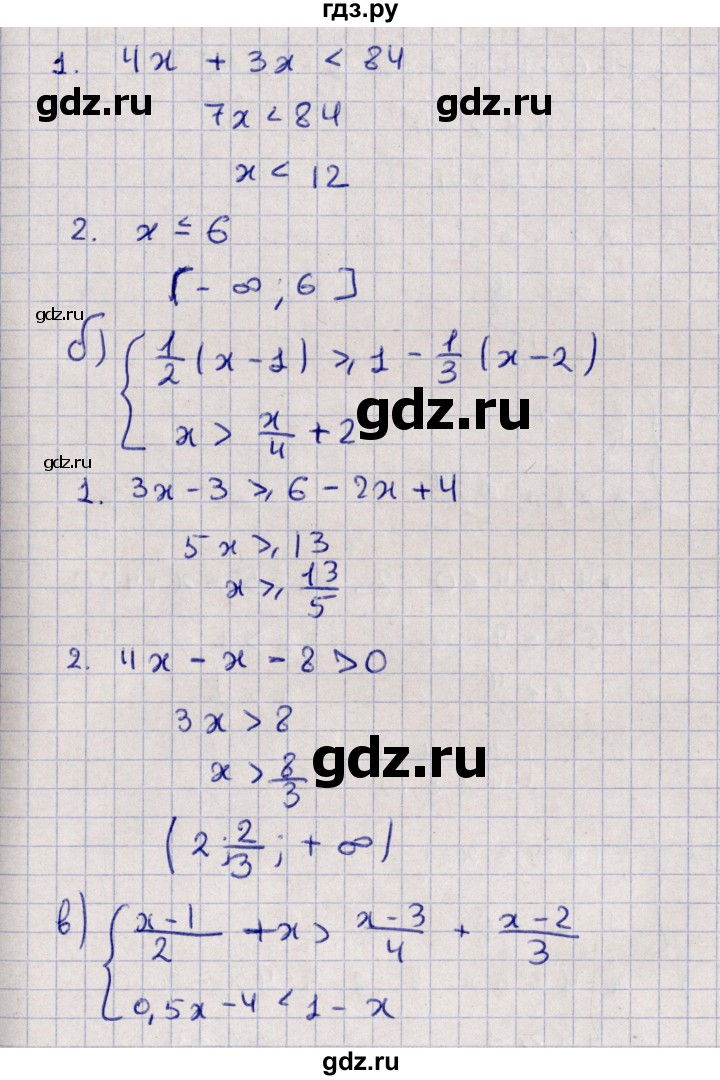 гдз.ру
1. 4x + 3x < 84
gdz.ru gdz.ru
7x < 84
x < 12
2. x ≤ 6
[-∞; 6]
gdz.ru
б) { 1/2 (x - 1) ≥ 1 - 1/3 (x - 2)
x > x/4 + 2
gdz.ru
gdz.ru
1. 3x - 3 ≥ 6 - 2x + 4
5x ≥ 13
x ≥ 13/5
2. 4x - x - 8 > 0
3x > 8
x > 8/3
gdz.ru
(2 2/3; +∞)
в) { (x-1)/2 + x > (x-3)/4 + (x-2)/3
0,5x - 4 < 1 - x
gdz.ru